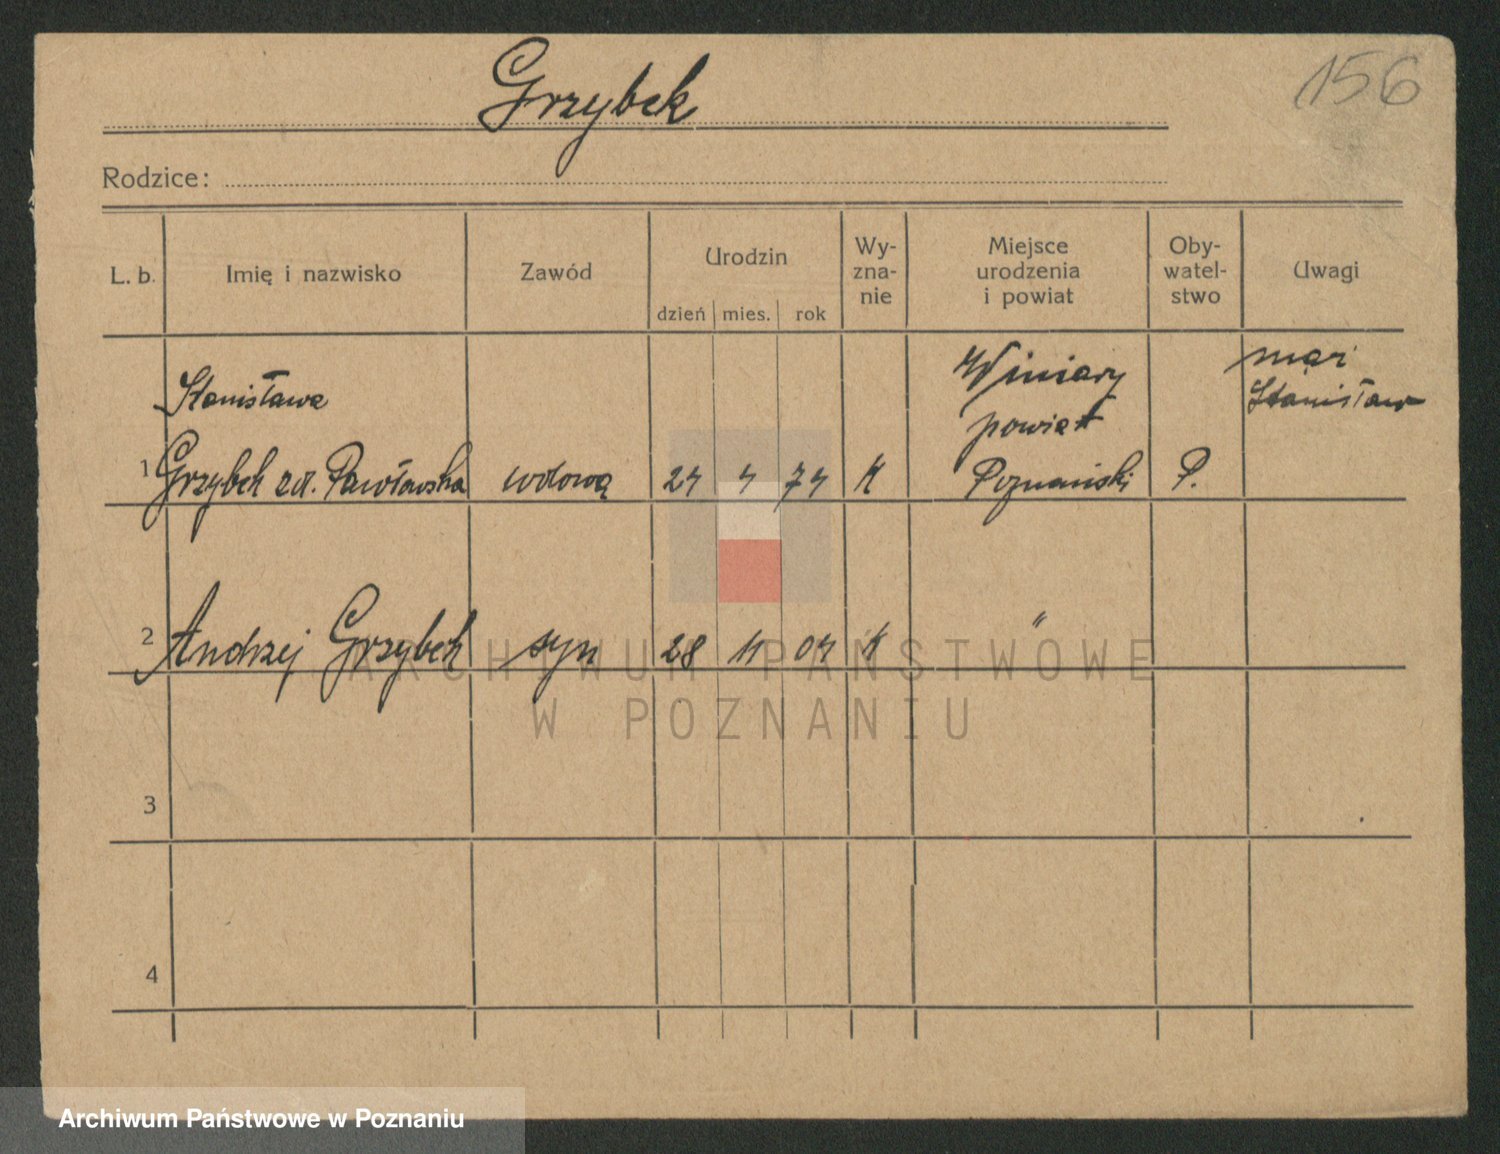 156
Grzybek
Rodzice:
L. b. Imię i nazwisko Zawód Urodzin dzień mies. rok Wy-zna-nie Miejsce urodzenia i powiat Oby-watel-stwo Uwagi
Stanisława Winiary mąż
powiat Stanisław
1 Grzybek zd. Pawłowska wdowa K Poznański P.
2 Andrzej Grzybek syn 28 11 04 K "
3
4
ARCHIWUM PAŃSTWOWE
W POZNANIU
Archiwum Państwowe w Poznaniu